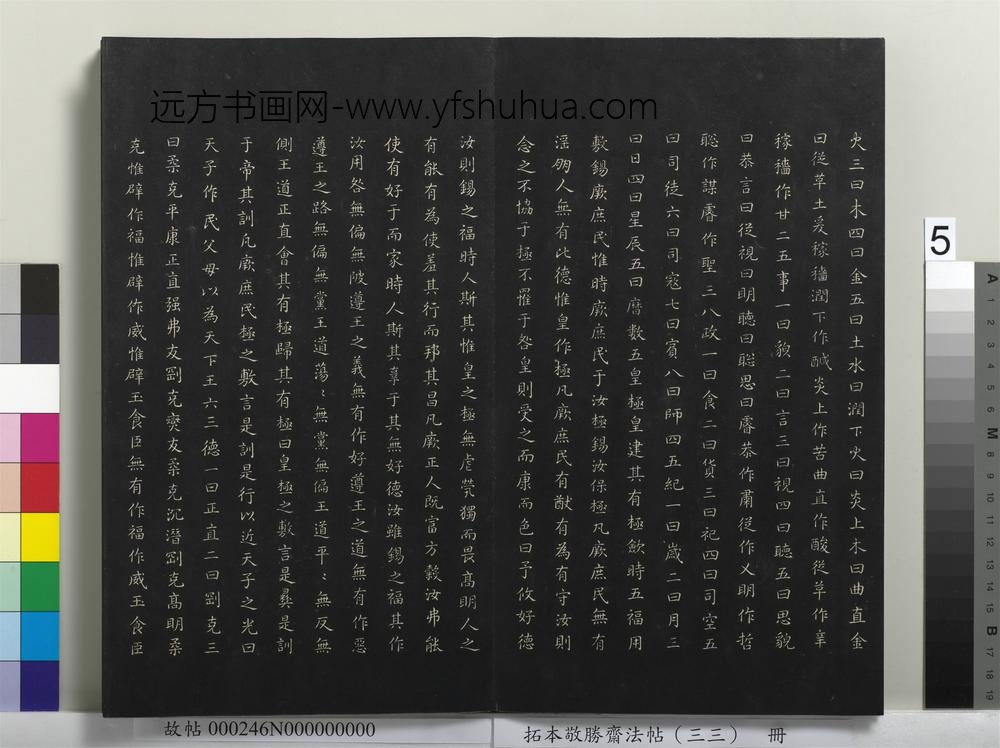 远方书画网-www.yfshuhua.com
火三曰木四曰金五曰土水曰潤下火曰炎上木曰曲直金
曰從革土爰稼穡潤下作鹹炎上作苦曲直作酸從革作辛
稼穡作甘二五事一曰貌二曰言三曰視四曰聽五曰思貌
曰恭言曰從視曰明聽曰聡思曰睿恭作肅從作乂明作哲
聡作謀睿作聖三八政一曰食二曰貨三曰祀四曰司空五
曰司徒六曰司寇七曰賓八曰師四五紀一曰歲二曰月三
曰日四曰星辰五曰曆數五皇極皇建其有極歛時五福用
敷錫厥庶民惟時厥庶民于汝極錫汝保極凡厥庶民無有
淫朋人無有比德惟皇作極凡厥庶民有猷有為有守汝則
念之不協于極不罹于咎皇則受之而康而色曰予攸好德
汝則錫之福時人斯其惟皇之極無虐煢獨而畏髙明人之
有能有為使羞其行而邦其昌凡厥正人既富方穀汝弗能
使有好于而家時人斯其辜于其無好德汝雖錫之福其作
汝用咎無偏無陂遵王之義無有作好遵王之道無有作惡
遵王之路無偏無黨王道蕩〻無黨無偏王道平〻無反無
側王道正直會其有極歸其有極曰皇極之敷言是彝是訓
于帝其訓凡厥庶民極之敷言是訓是行以近天子之光曰
天子作民父母以為天下王六三德一曰正直二曰剛克三
曰柔克平康正直强弗友剛克燮友柔克沉潛剛克髙明柔
克惟辟作福惟辟作威惟辟玉食臣無有作福作威玉食臣
5
A 1 2 3 4 5 6 M 8 9 10 11 12 13 14 15 B 17 18 19
故帖 000246N000000000
拓本敬勝齋法帖（三三） 冊